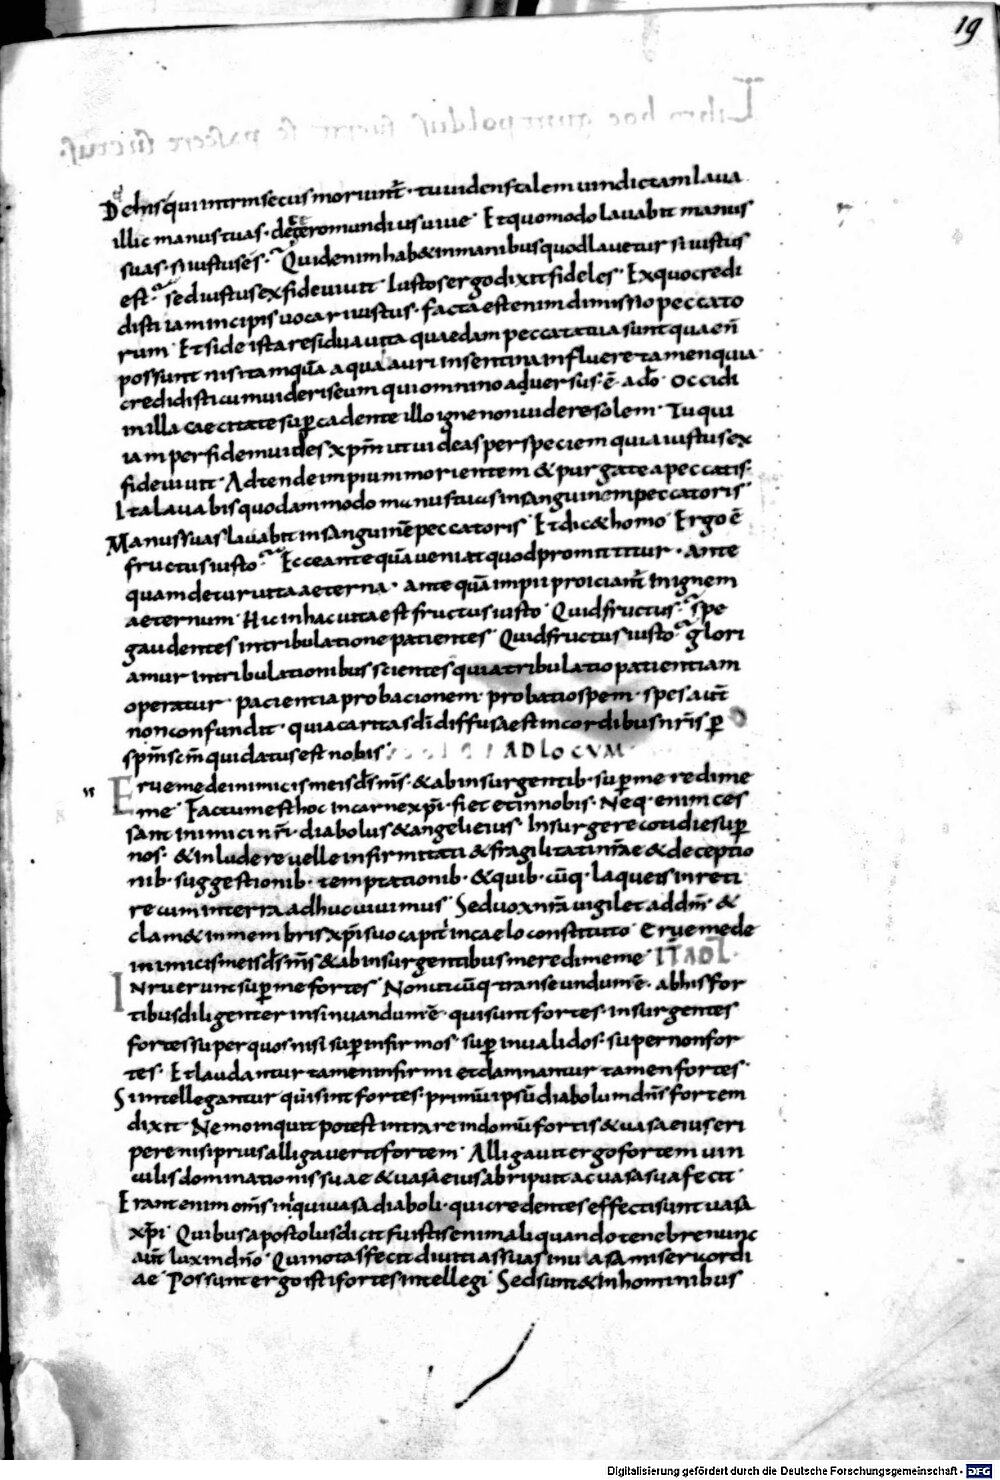 19
De his qui intrinsecus moriunt̄· tu uidens talem uindictam laua
illic manus tuas· de cetero mundius uiue· Et quomodo lauabit manus
suas· si iustus es· Quid enim hab& in manibus quod lauetur si iustus
est· sed iustus ex fide uiuit· Iustos ergo dixit fideles· Ex quo credi
disti iam incipis uocari iustus· facta est enim dimissio peccato
rum· Et si de ista residua uita quaedam peccata tua sunt quae n̄
possunt nisi tamquā aqua mari in sentina influere tamen quia
credidisti cum uideris eum qui omnino aduersus ē a dō· occidi
in illa caecitate sup cadente illo igne non uidere solem· Tu qui
iam per fidem uides xpm̄ ut uideas per speciem quia iustus ex
fide uiuit· Adtende impium morientem & purgate a peccatis·
Ita lauabis quodammodo manus tuas in sanguinem peccatoris·
Manus suas lauabit in sanguinē peccatoris· Et dic& homo· Ergo ē
fructus iusto· Ecce antequā ueniat quod promittitur· Ante
quam detur uita aeterna· ante quā impii proiciant̄ in ignem
aeternum· Hic in hac uita est fructus iusto· Quid fructus· spe
gaudentes in tribulatione patientes· Quid fructus iusto· glori
amur in tribulationibus scientes quia tribulatio patientiam
operatur· pacientia probacionem· probatio spem· spes aut̄
non confundit· quia caritas dī diffusa est in cordibus nr̄is p
spm̄ scm̄ qui datus est nobis· AD LOCVM·
Erue me de inimicis meis ds̄ ms̄· & ab insurgentib· sup me redime
me· Factum est hoc in carne xpi· fiet et in nobis· Neq· enim ces
sant inimici nr̄i· diabolus & angeli eius· Insurgere cotidie sup
nos· & inludere uelle infirmitati & fragilitati nr̄ae & deceptio
nib· suggestionib· temptationib· & quib· cūq· laqueis inreti
re cum in terra adhuc uiuimus· Sed uox nr̄a uigilet ad dm̄· &
clam& in membris xpi suo capiti in caelo constituto· Erue me de
inimicis meis ds̄ ms̄ & ab insurgentibus me redime me· IT̄ AD L·
Inruerunt sup me fortes· Non iticūq· transeundum ē· ab his for
tibus diligenter insinuandum ē· qui sunt fortes· insurgentes
fortes super quos nisi sup infirmos· sup inualidos· super non for
tes· Et laudantur tamen infirmi et damnantur tamen fortes·
Si intellegantur qui sint fortes· primū ipsū diabolum dn̄s fortem
dixit· Nemo inquit potest intrare in domū fortis & uasa eius eri
pere nisi prius alligauerit fortem· Alligauit ergo fortem uin
culis dominationis suae & uasa eius abripuit ac uasa sua fecit·
Erant enim om̄s iniqui uasa diaboli· qui credentes effecti sunt uasa
xpi· Quibus apostolus dicit fuistis enim aliquando tenebre nunc
aut̄ lux in dn̄o· Qui notas fecit diuitias suas in uasa misericordi
ae· Possunt ergo isti fortes intellegi· Sed sunt & in hominibus
Digitalisierung gefördert durch die Deutsche Forschungsgemeinschaft - DFG